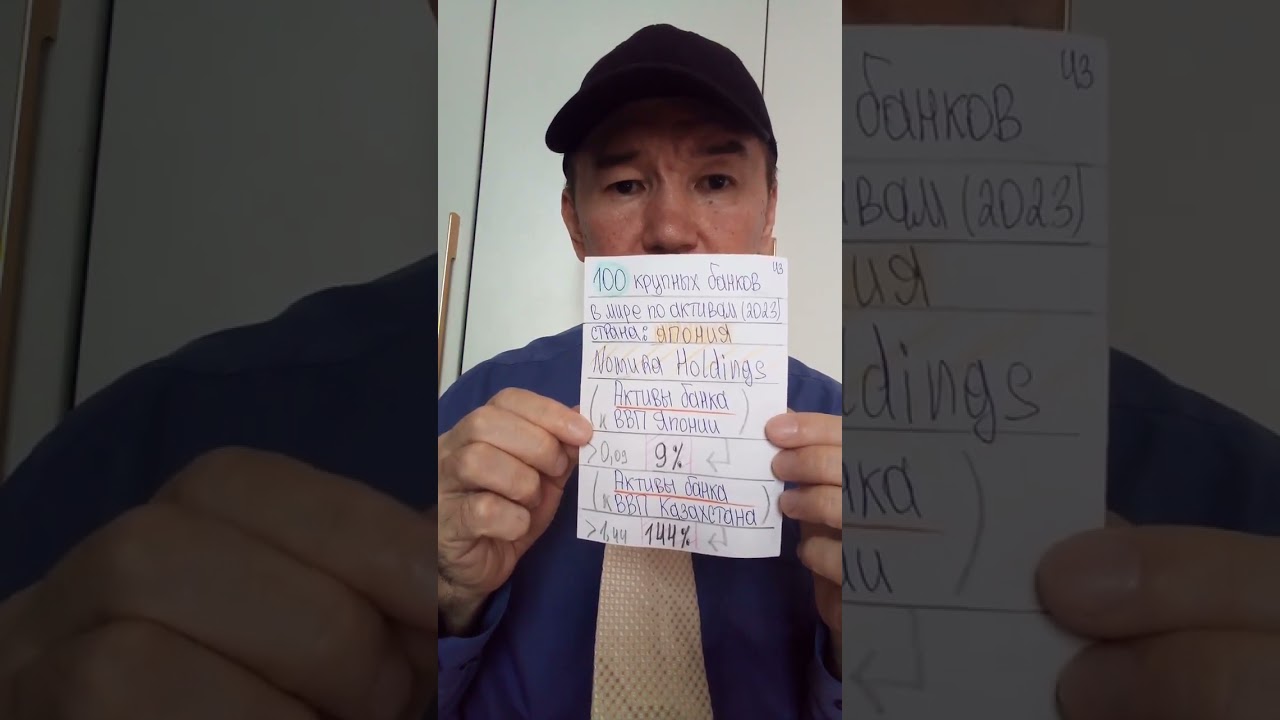 100 крупных банков
43
в мире по активам (2023)
страна: япония
Nomura Holdings
(Активы банка
к ВВП Японии)
>0,09 9%
(Активы банка
к ВВП Казахстана)
>1,44 144%